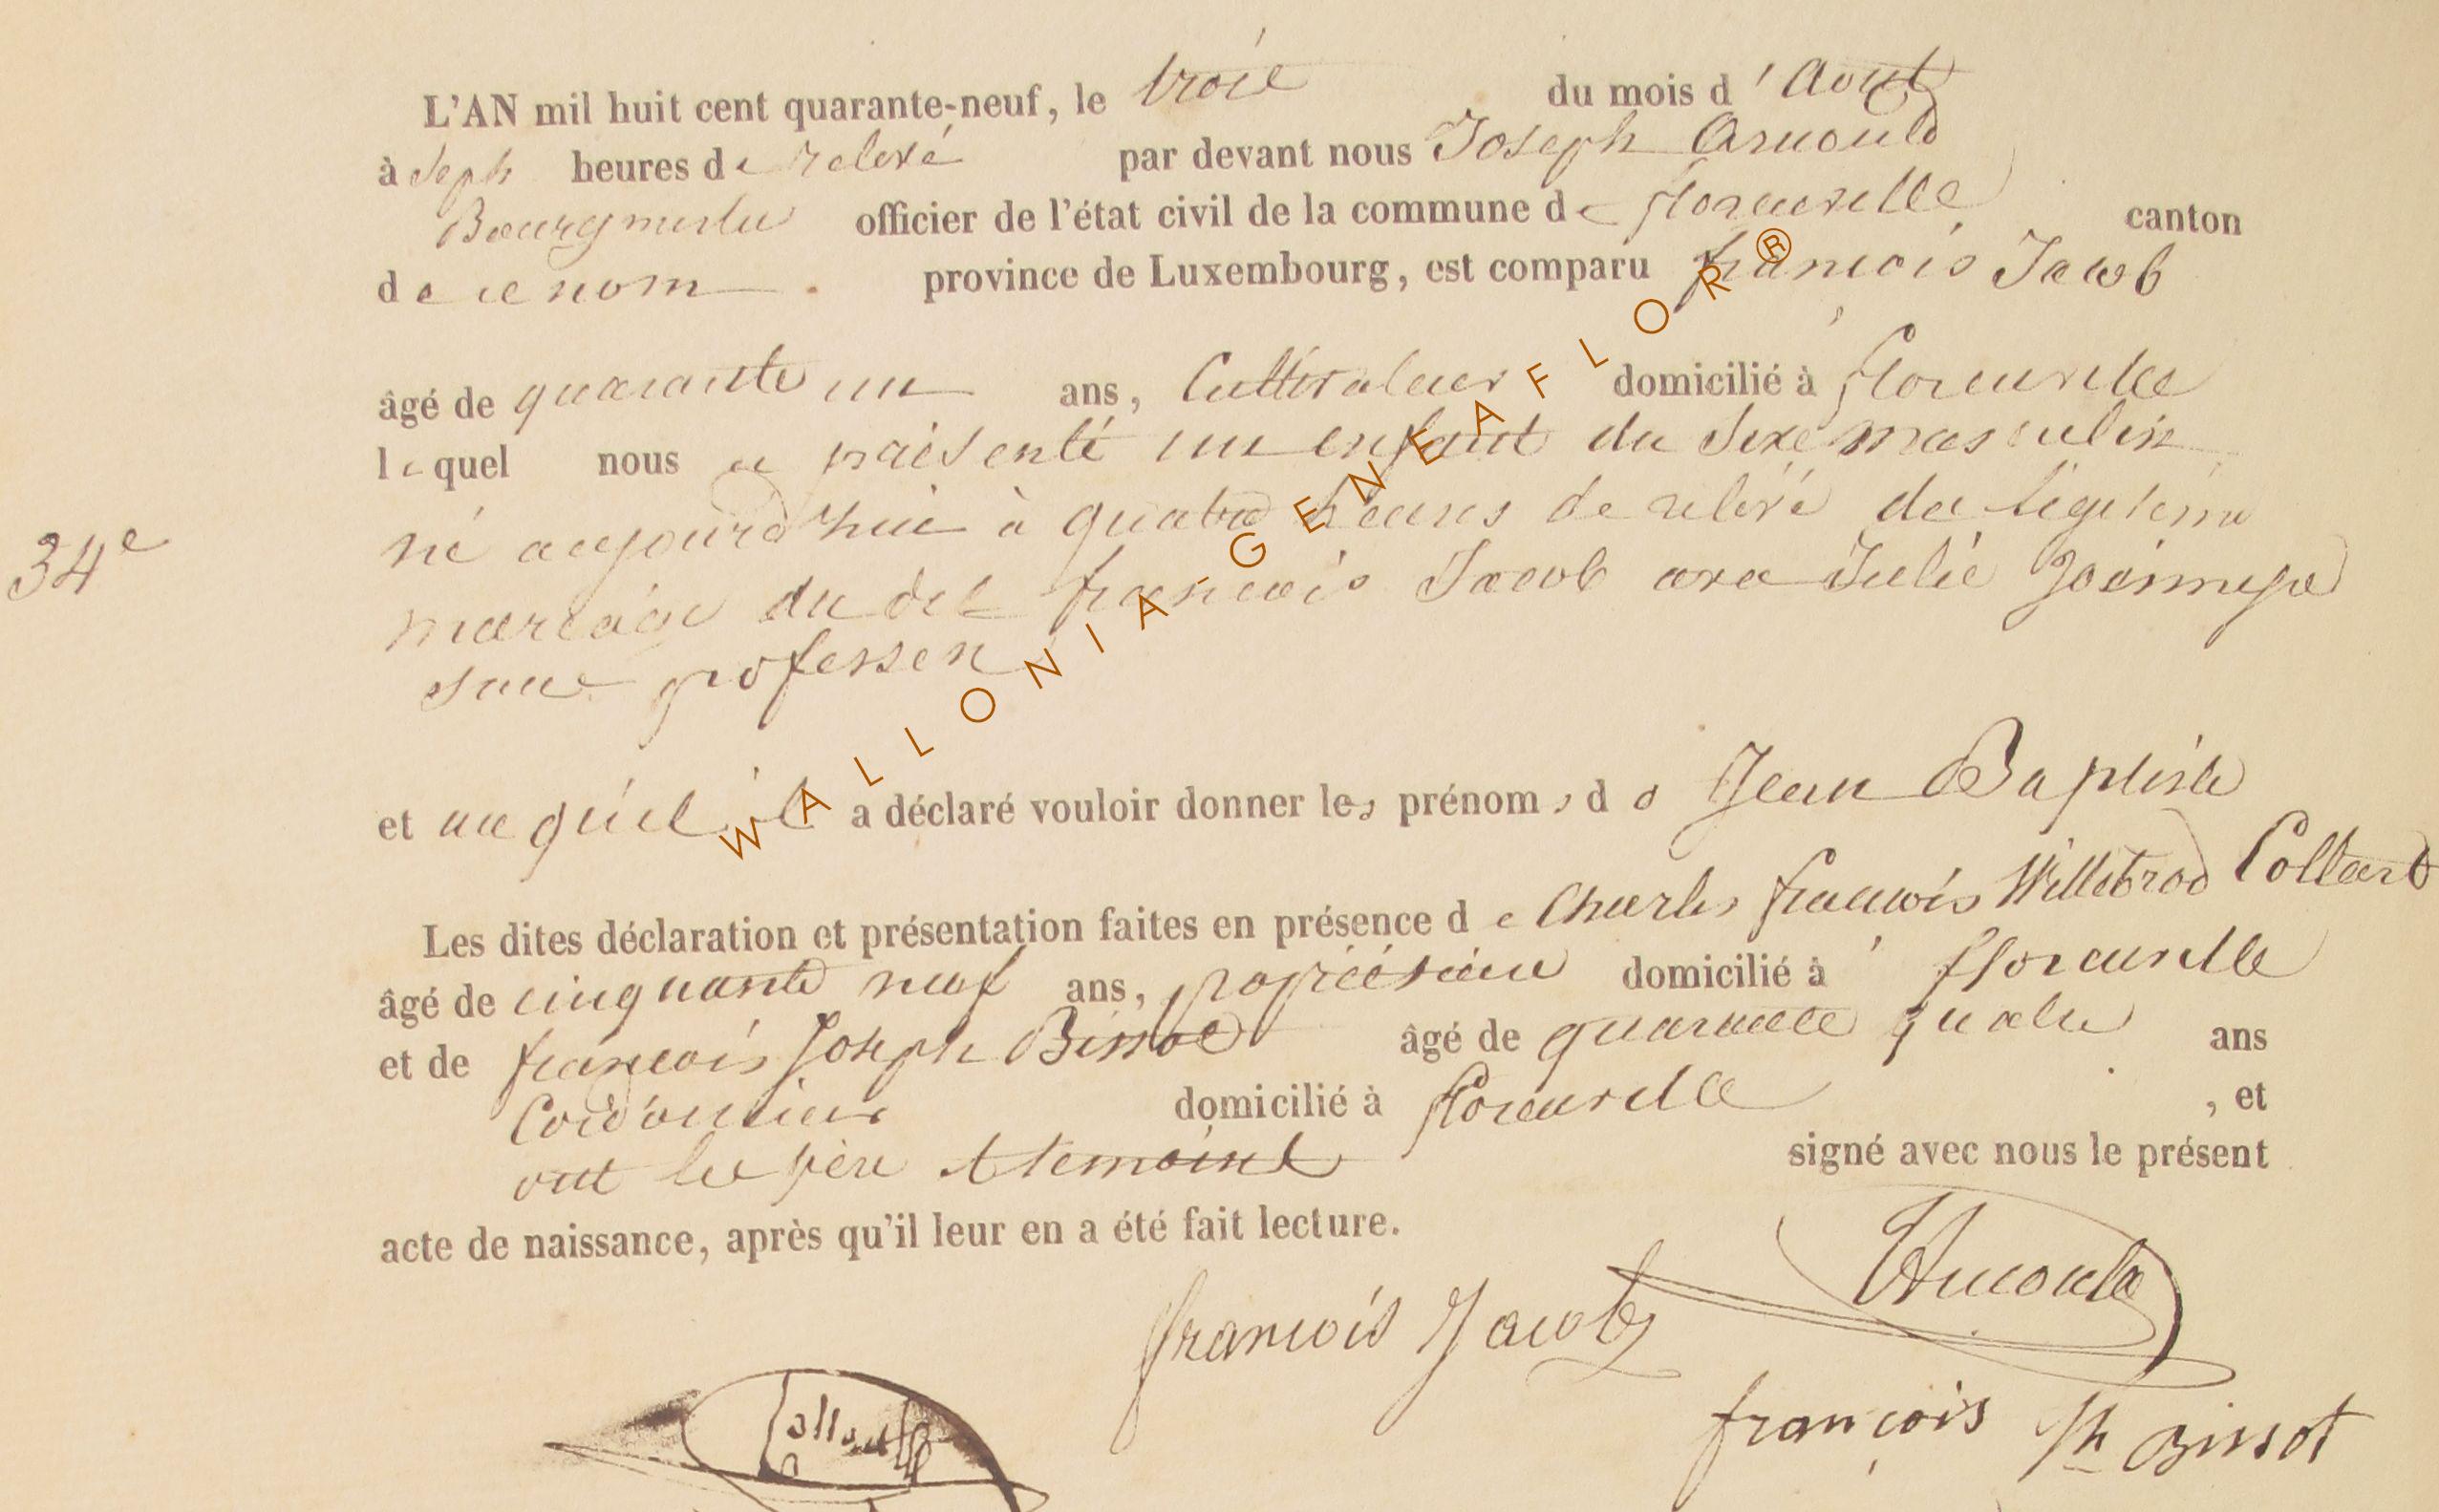 L'AN mil huit cent quarante-neuf, le trois du mois d'Aout
à Sept heures de relevé par devant nous Joseph Arnould
Bourgmestre officier de l'état civil de la commune de florenville canton
de ce nom province de Luxembourg, est comparu françois Jacob
âgé de quarante un ans, Cultivateur domicilié à florenville
lequel nous a présenté un enfant du Sexe masculin
34e
né aujourd'hui à quatre heures de relevé du légitime
mariage du dit françois Jacob avec Julie
sans profession
et auquel il a déclaré vouloir donner les prénoms de Jean Baptiste
Les dites déclaration et présentation faites en présence de Charles françois Willebrod Collard
âgé de cinquante neuf ans, propriétaire domicilié à florenville
et de françois Joseph Bissot âgé de quarante quatre ans
Cordonnier domicilié à florenville, et
ont les père et temoins signé avec nous le présent
acte de naissance, après qu'il leur en a été fait lecture.
JArnould
françois Jacob
françois Jh Bissot
Collard
WALLONIA-GENEAFLOR®